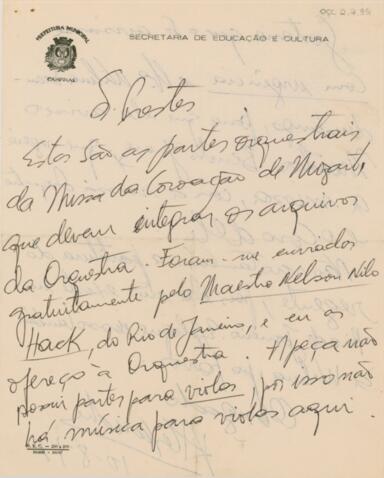 OCC 2.7.95
PREFEITURA MUNICIPAL
CAMPINAS
SECRETARIA DE EDUCAÇÃO E CULTURA
Sr. Prestes
Estas são as partes orquestrais
da Missa da Coroação de Mozart,
que devem integrar os arquivos
da Orquestra. Foram-me enviadas
gratuitamente pelo Maestro Nelson Nilo
Hack, do Rio de Janeiro, e eu as
ofereço à Orquestra. A peça não
possui partes para violas, por isso não
há música para violas aqui.